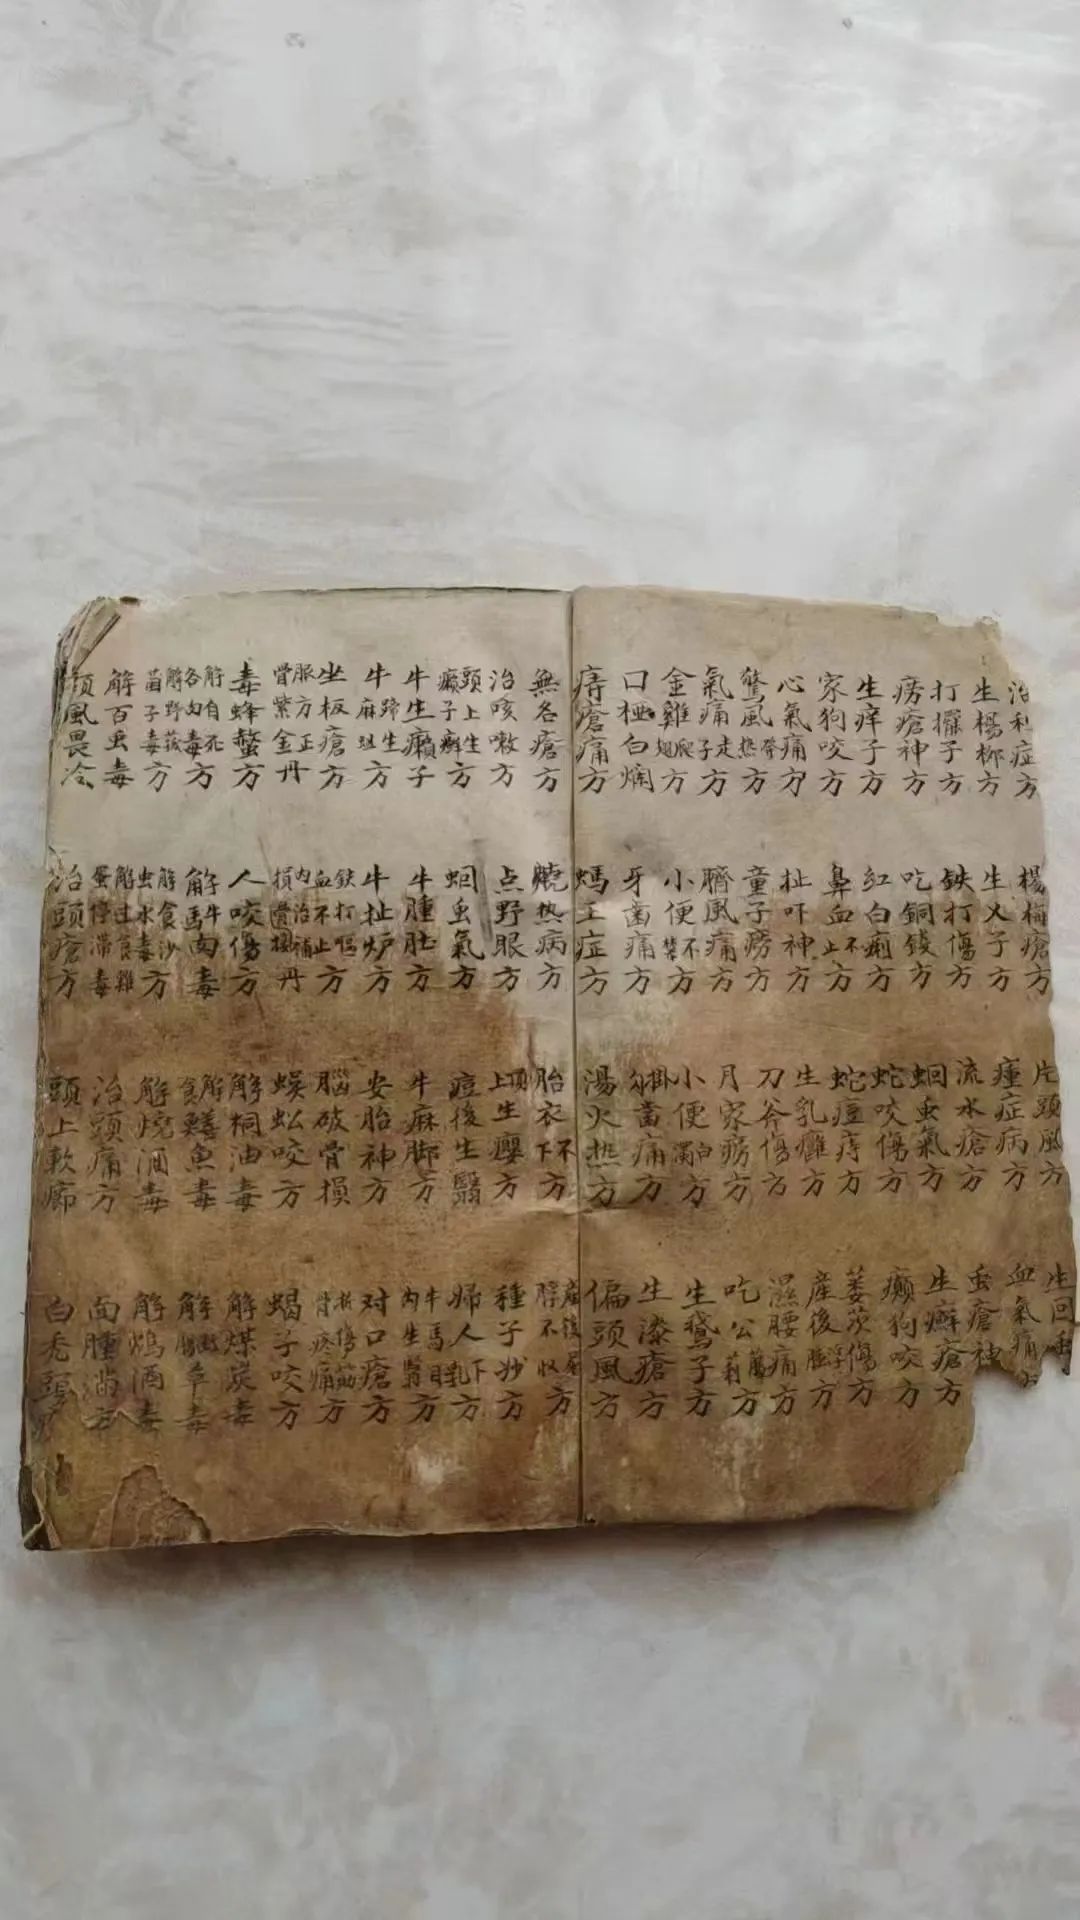 治利症方
生楊柳方
打擺子方
痨瘡神方
生痒子方
家狗咬方
心氣痛方
驚風帶热方
氣痛走子方
金雞爬翅方
口極白爛
痔瘡痛方
楊梅瘡方
生乂子方
鉄打傷方
吃銅錢方
紅白痢方
鼻血不止方
扯吓神方
童子痨方
臍風痛方
小便不禁方
牙齒痛方
螞王症方
片頭風方
瘇症病方
流水瘡方
蛔虫氣方
蛇咬傷方
蛇痘痔方
生乳癰方
刀斧傷方
月家痨方
小便白濁方
掛勾齒痛方
湯火热方
生回
血氣痛方
虫瘡神
生癬瘡方
癲狗咬方
萎茨傷方
產後浮腫方
濕腰痛方
吃公蔔莉方
生鵞子方
生漆瘡方
偏頭風方
無名瘡方
治咳嗽方
頭上生癩子癬方
牛生癩子
牛蹄生麻蛆方
坐板瘡方
服方正骨紫金丹
毒蜂螫方
解自死各肉毒方
解野菰菌子毒方
解百虫毒
頭風畏冷
燒热病方
点野眼方
蛔虫氣方
牛腫肚方
牛扯炉方
鉄打傷血不止方
内治補損丹
人咬傷方
解牛馬肉毒
解食沙虫水毒方
解过食雞蛋停滞毒
治頭瘡方
胎衣不下方
頂上生癭方
痘後生翳
牛麻脚方
安胎神方
腦破骨損
蜈蚣咬方
解桐油毒
解食鱔魚毒
解燒酒毒
治頭痛方
頭上軟癤
產後尿脬不收方
種子妙方
婦人下乳方
牛馬目内生翳方
对口瘡方
折傷筋骨疼痛方
蝎子咬方
解煤炭毒
解草毒
解鴆酒毒
面腫滿方
白秃頭